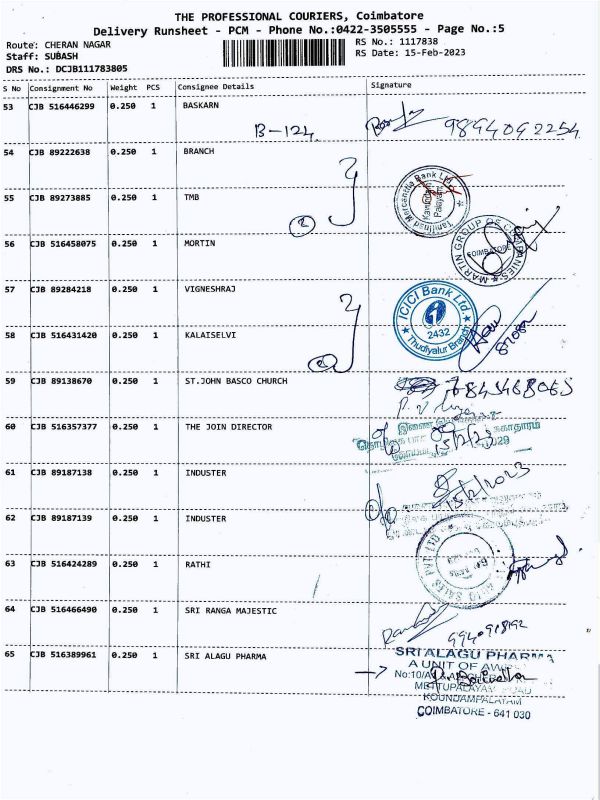 THE PROFESSIONAL COURIERS, Coimbatore
Delivery Runsheet - PCM - Phone No.:0422-3505555 - Page No.:5
Route: CHERAN NAGAR RS No.: 1117838
Staff: SUBASH RS Date: 15-Feb-2023
DRS No.: DCJB111783805
S No Consignment No Weight PCS Consignee Details Signature
53 CJB 516446299 0.250 1 BASKARN
B-124 9894092254
54 CJB 89222638 0.250 1 BRANCH
Tamilnad Mercantile Bank Ltd.
55 CJB 89273885 0.250 1 TMB
2
56 CJB 516458075 0.250 1 MORTIN
MARTIN GROUP OF COMPANIES
COIMBATORE
57 CJB 89284218 0.250 1 VIGNESHRAJ
ICICI Bank Ltd.
2432
Thudiyalur Branch
58 CJB 516431420 0.250 1 KALAISELVI
59 CJB 89138670 0.250 1 ST.JOHN BASCO CHURCH
60 CJB 516357377 0.250 1 THE JOIN DIRECTOR
இணை
15/2/23
61 CJB 89187138 0.250 1 INDUSTER
15/2/2023
62 CJB 89187139 0.250 1 INDUSTER
63 CJB 516424289 0.250 1 RATHI
64 CJB 516466490 0.250 1 SRI RANGA MAJESTIC
65 CJB 516389961 0.250 1 SRI ALAGU PHARMA
SRI ALAGU PHARMA
A UNIT OF
METTUPALAYAM ROAD
KOUNDAMPALAYAM
COIMBATORE - 641 030